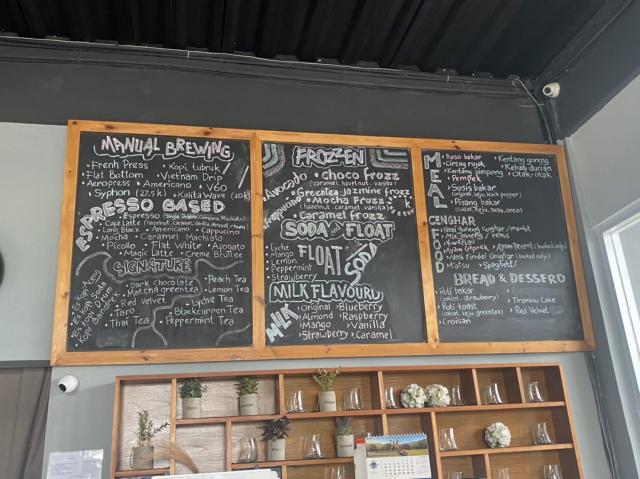 MANUAL BREWING
• Frenh Press • Kopi tubruk
• Flat Bottom • Vietnam Drip
• Aeropress • Americano • V60
• Syphon (27,5 k) • Kalita Wave (20k)
ESPRESSO BASED
• Espresso
• Cafe Latte
• Long Black • Americano • Cappucino
• Mocha • Caramel Machiato
• Picollo • Flat White • Avogato
• Magic Latte • Creme Brullee
SIGNATURE
• Dark Chocolate • Peach Tea
• Matcha greentea • Lemon Tea
• Red Velvet • Lyche Tea
• Taro • Blackcurren Tea
• Thai Tea • Peppermint Tea
FROZZEN
Avocado
Frappuccino
• choco Frozz
(caramel, hazelnut, vanilla)
• Greentea Jazmine frozz
• Mocha Frozz
(hazelnut, caramel, vanilla)
• Caramel frozz
SODA FLOAT
• Lyche
• Mango
• Lemon
• Peppermint
• Strawberry
FLOAT SODA
MILK FLAVOURD
MILK
• Original • Blueberry
• Almond • Raspberry
• Mango • Vanilla
• Strawberry • Caramel
MEAL
• Baso bakar • Kentang goreng
• Cireng rujak • Kebab durian
• Kentang gimpong • Otak-otak
• Pempek
• Sosis bakar
(original, keju, black pepper)
• Pisang bakar
FOOD
CENGHAR
• Nasi Goreng Cenghar
• Kwetiau
• Ayam Geprek
• Matsu • Spaghetti
BREAD & DESSERD
• Roti bakar
(coklat, strawberry) • Tiramisu Cake
• Red Velvet
(coklat, keju, greentea)
• Croisan